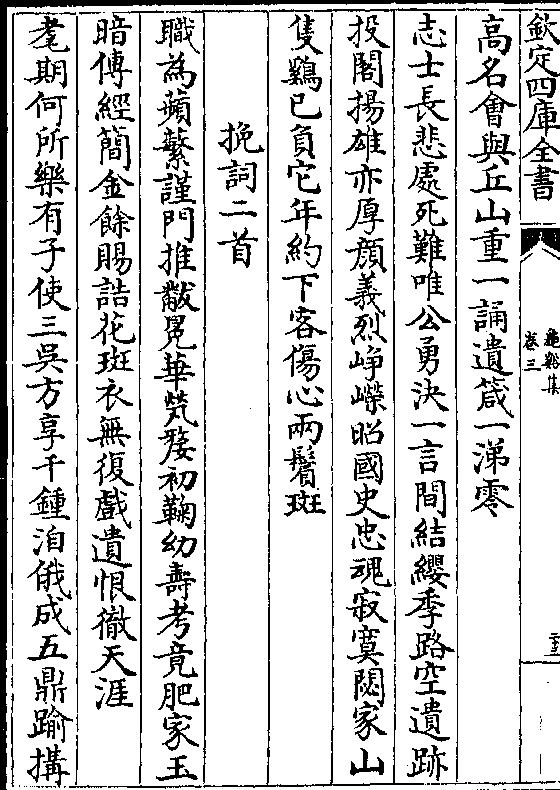 欽定四庫全書
龜谿集
卷三
高名㑹與丘山重一誦遺箴一涕零
志士長悲處死難唯公勇決一言間結纓季路空遺跡
投閣揚雄亦厚顔義烈峥嶸昭國史忠魂寂寞閟家山
隻鷄已負它年約下客傷心兩鬢斑
挽詞二首
職為蘋蘩謹門推黻冕華煢嫠初鞠幼壽考竟肥家玉
暗傳經簡金餘賜誥花斑衣無復戲遺恨徹天涯
耄期何所樂有子使三吳方享千鍾洎俄成五鼎踰搆